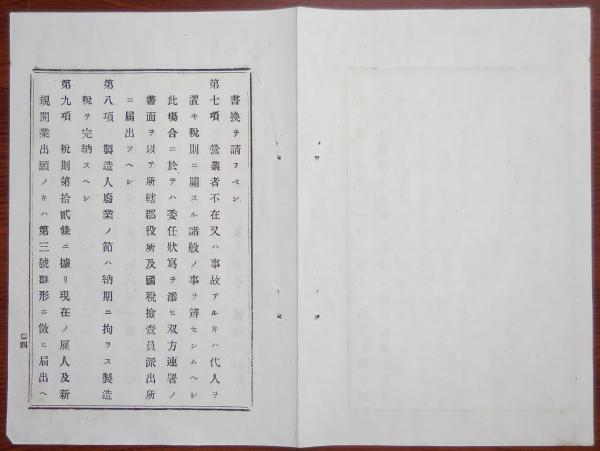 書換ヲ請フベシ
第七項 營業者不在又ハ事故アルキハ代人ヲ
置キ税則ニ關スル諸般ノ事ヲ辨セシムヘシ
此塲合ニ於テハ委任狀寫ヲ添ヒ双方連署ノ
書面ヲ以テ所轄郡役所及國税檢查員派出所
ニ届出ツヘシ
第八項 製造人廢業ノ節ハ納期ニ拘ラス製造
税ヲ完納スヘシ
第九項 税則第拾貳條ニ據リ現在ノ雇人及新
規開業出願ノキハ第三號雛形ニ傚ヒ届出ヘ
四